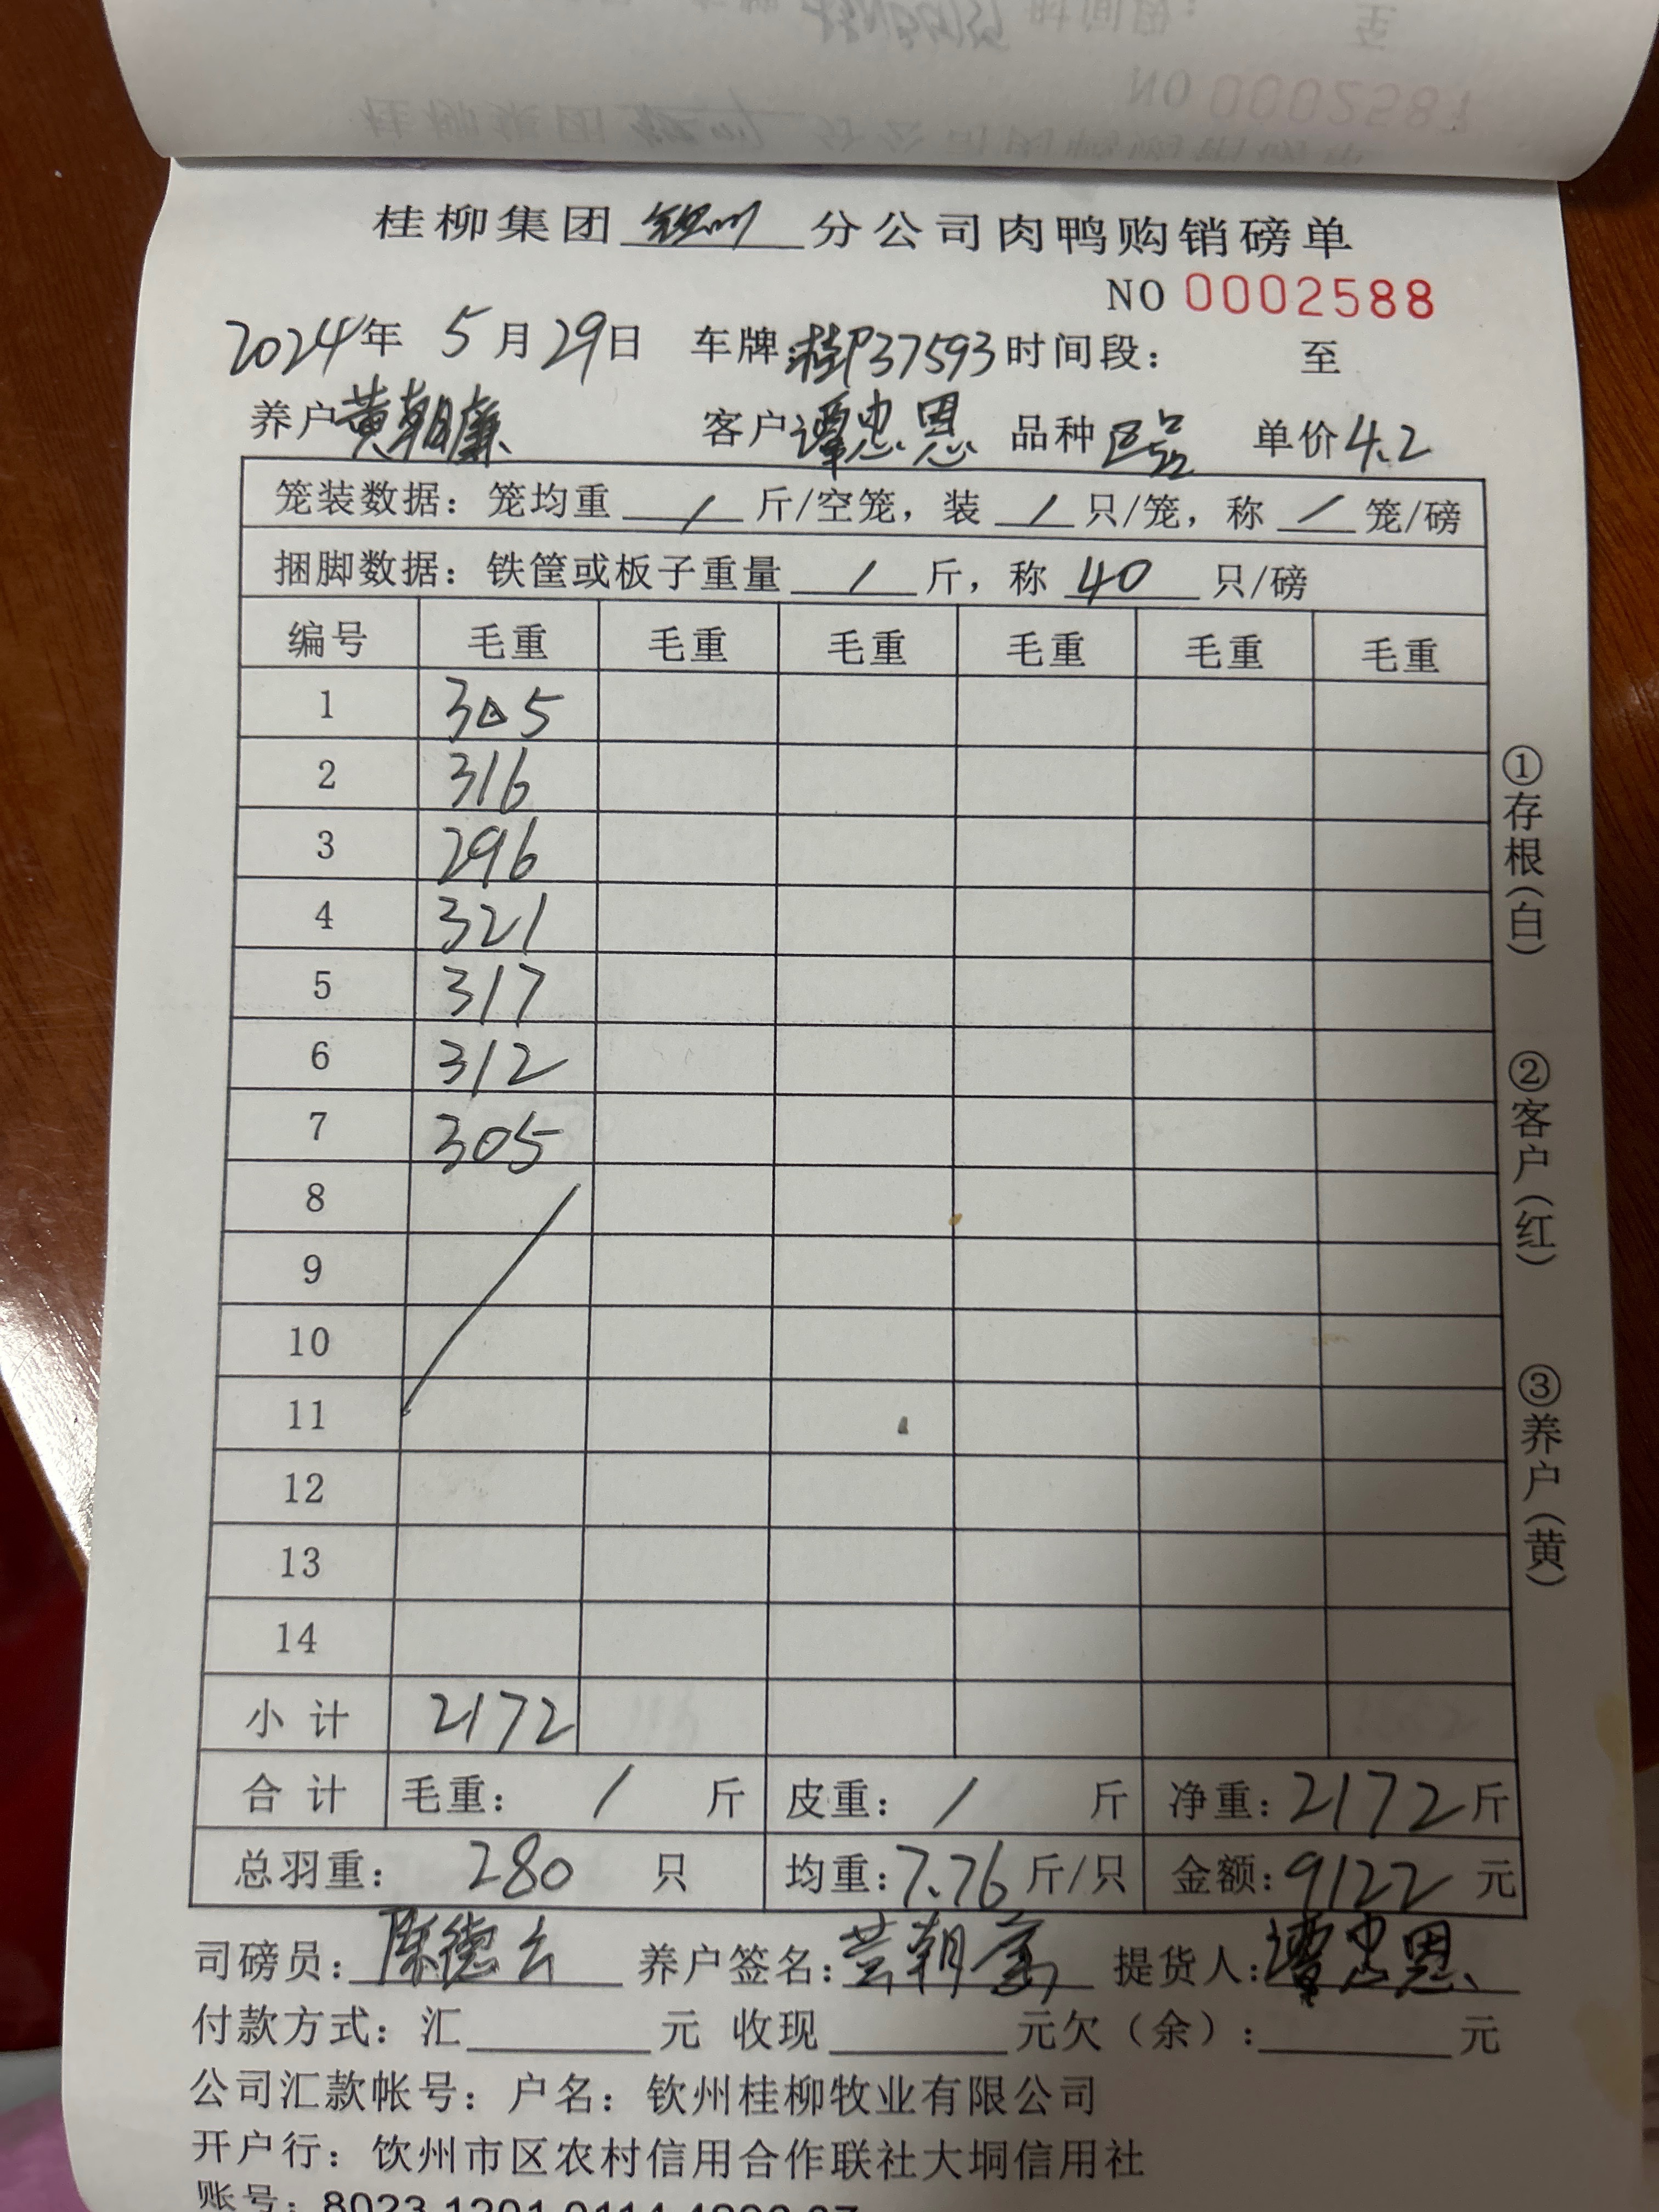 桂柳集团 钦州 分公司肉鸭购销磅单
NO 0002588
2024年 5月29日 车牌:桂P37593 时间段: 至
养户 黄朝廉 客户 谭忠恩 品种 单价 4.2
笼装数据:笼均重 / 斤/空笼,装 / 只/笼,称 / 笼/磅
捆脚数据:铁筐或板子重量 / 斤,称 40 只/磅
编号 毛重 毛重 毛重 毛重 毛重 毛重
1 305
2 316
3 296
4 321
5 317
6 312
7 305
8
9
10
11
12
13
14
小计 2172
合计 毛重: / 斤 皮重: / 斤 净重:2172斤
总羽重: 280 只 均重:7.76斤/只 金额:9122元
司磅员:陈德云 养户签名:黄朝廉 提货人:谭忠恩
付款方式:汇 元 收现 元欠(余): 元
公司汇款帐号:户名:钦州桂柳牧业有限公司
开户行:饮州市区农村信用合作联社大垌信用社
账号:8023 1201 0114
①存根(白) ②客户(红) ③养户(黄)
NO 0002581